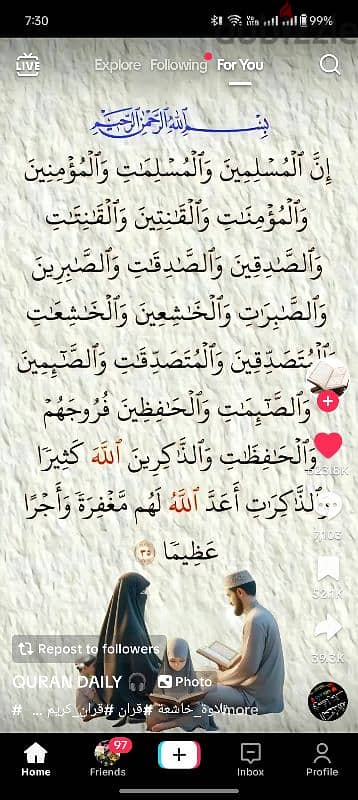 7:30
99%
LIVE
Explore
Following
For You
بِسْمِ ٱللَّهِ ٱلرَّحْمَٰنِ ٱلرَّحِيمِ
إِنَّ ٱلْمُسْلِمِينَ وَٱلْمُسْلِمَٰتِ وَٱلْمُؤْمِنِينَ
وَٱلْمُؤْمِنَٰتِ وَٱلْقَٰنِتِينَ وَٱلْقَٰنِتَٰتِ
وَٱلصَّٰدِقِينَ وَٱلصَّٰدِقَٰتِ وَٱلصَّٰبِرِينَ
وَٱلصَّٰبِرَٰتِ وَٱلْخَٰشِعِينَ وَٱلْخَٰشِعَٰتِ
وَٱلْمُتَصَدِّقِينَ وَٱلْمُتَصَدِّقَٰتِ وَٱلصَّٰٓئِمِينَ
وَٱلصَّٰٓئِمَٰتِ وَٱلْحَٰفِظِينَ فُرُوجَهُمْ
وَٱلْحَٰفِظَٰتِ وَٱلذَّٰكِرِينَ ٱللَّهَ كَثِيرًا
وَٱلذَّٰكِرَٰتِ أَعَدَّ ٱللَّهُ لَهُم مَّغْفِرَةً وَأَجْرًا
عَظِيمًا ٣٥
7,103
52.1K
39.3K
Repost to followers
QURAN DAILY 🎧 Photo
# ... تلاوة_خاشعة #قران #قران_كريم more
97
Home
Friends
Inbox
Profile